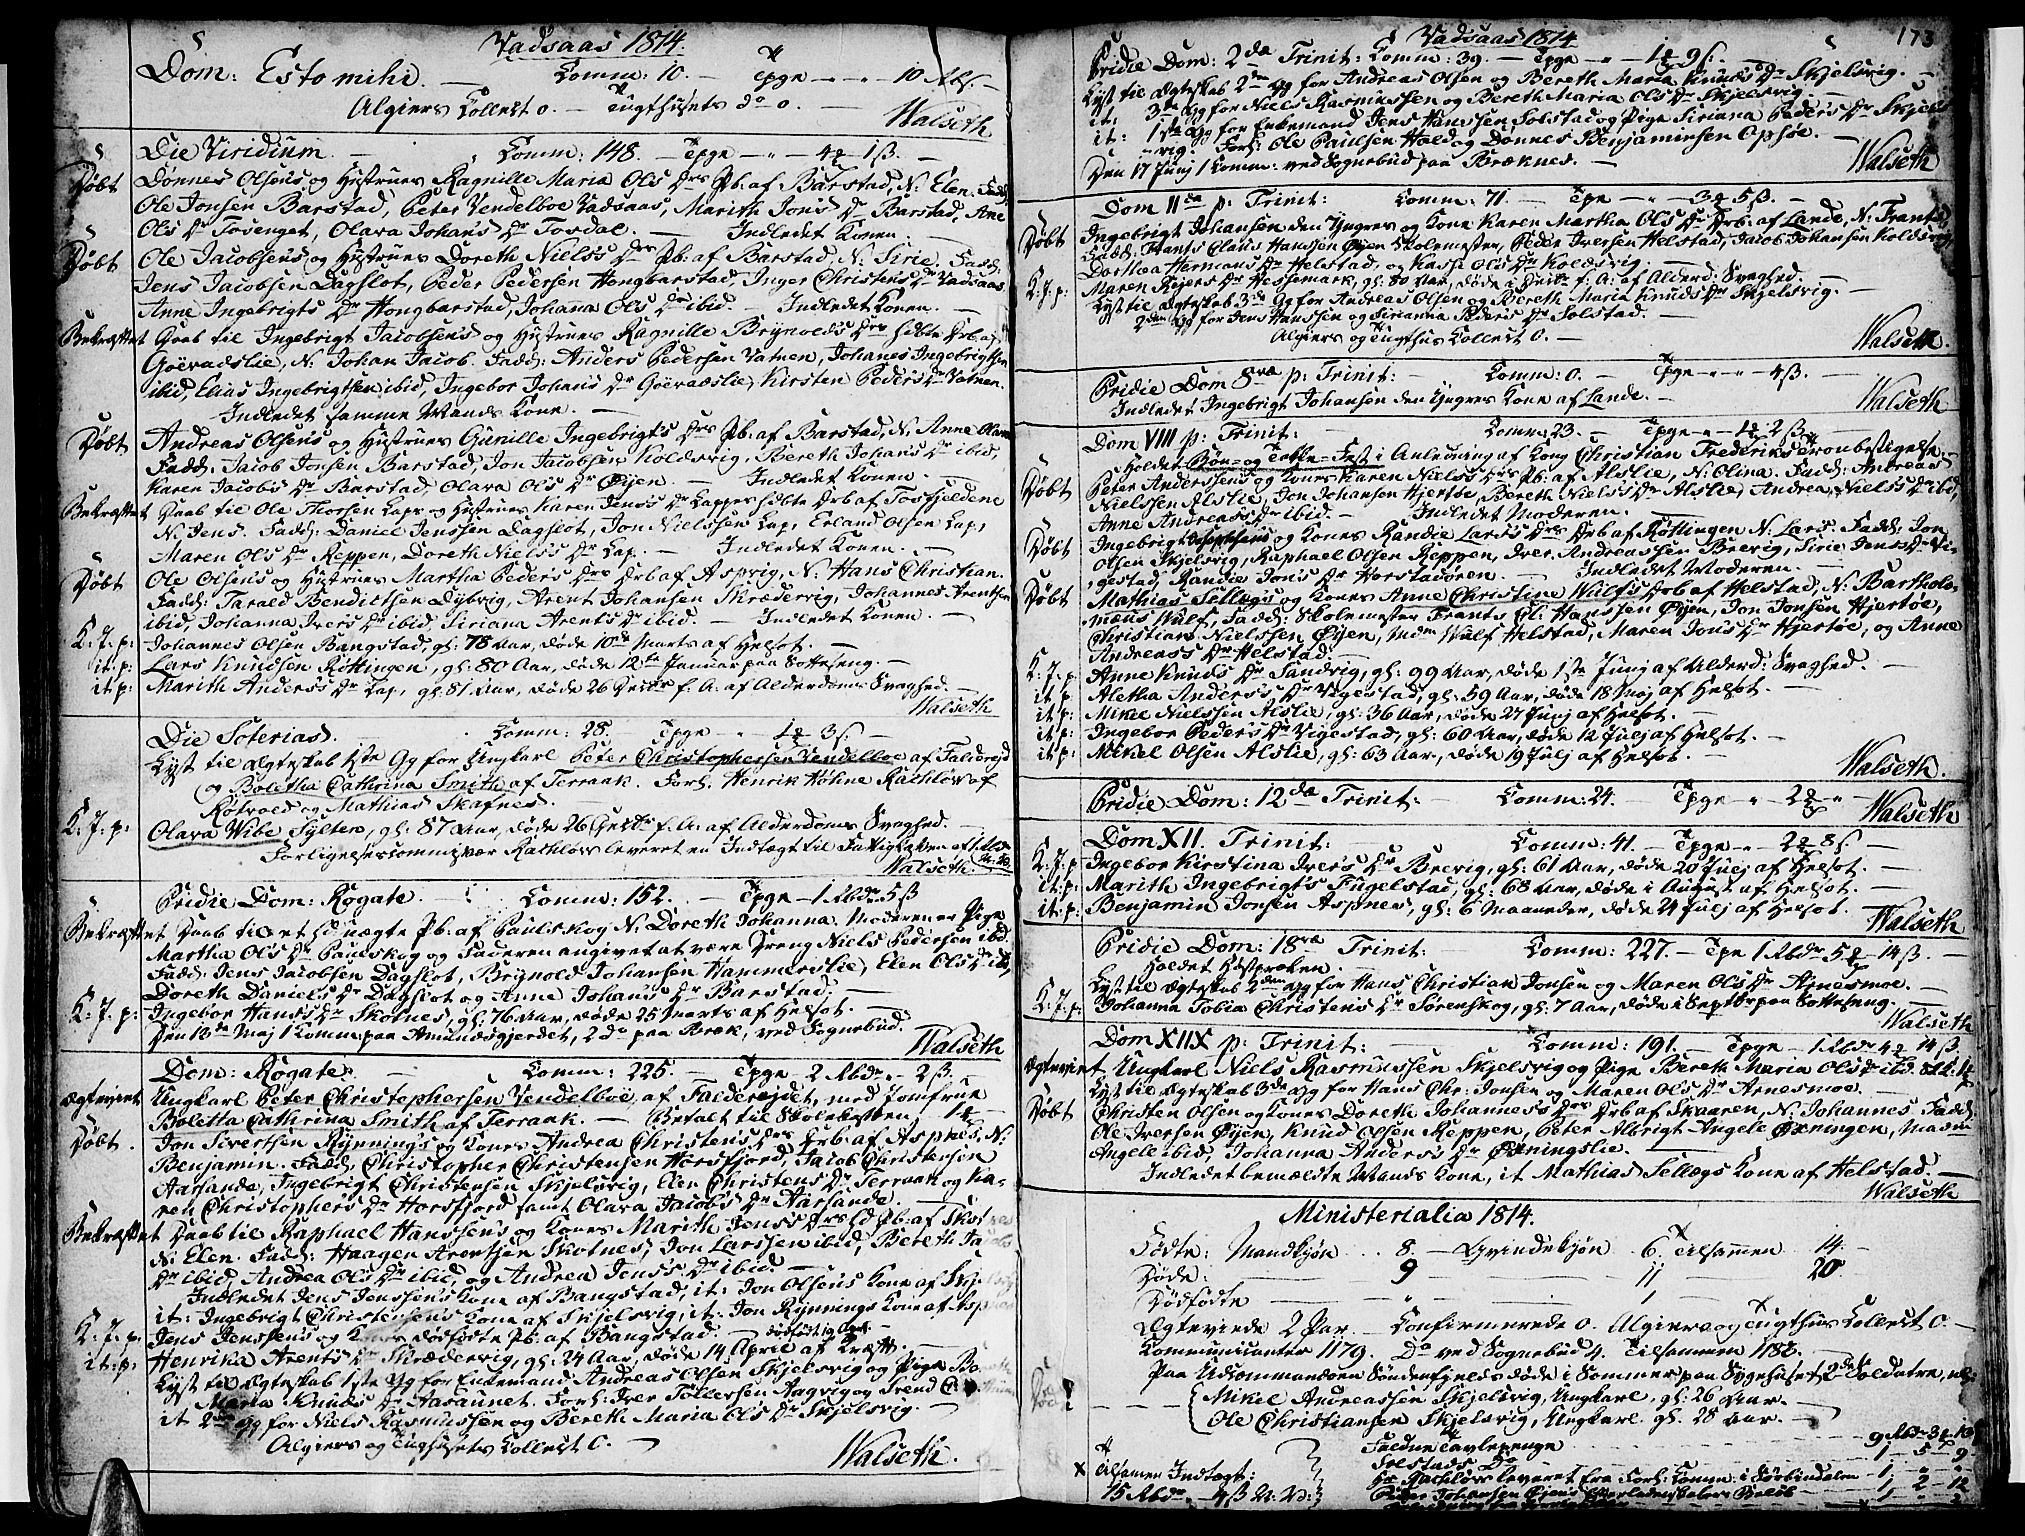 Vadsaas 1814.
Dom: Esto mihi. — Comm: 10. — Tpge — " — 10 Rbs. —
Algiers Collect 0. — Tugthusets do 0. —
Walseth
Die Viridium. — Comm: 148. — Tpge — " — 4 — 1 ß. —
Døbt Dønnes Olsens og Hustrues Ragnille Maria Ols Drs Pb: af Barstad, N: Elen. Fadd:
Ole Jonsen Barstad, Peter Vendelboe Vadsaas, Marith Jons Dr Barstad, Ane
Ols Dr Tosenget, Olava Johans Dr Tosdal. — Indledet Konen. —
Døbt Ole Jacobsens og Hustrues Doreth Nielss Drs Pb: af Barstad, N: Sirie. Fadd:
Jens Jacobsen Dagslot, Peder Pedersen Hongbarstad, Inger Christens Dr Vadsaas
Anne Ingebrigts Dr Hongbarstad, Johanna Ols Dr ibid. — Indledet Konen. —
Bekræftet Daab til Ingebrigt Jacobsens og Hustrues Ragnille Brynolds Drs fødte Drb: af
N: Johan Jacob. Fadd: Anders Pedersen Vatnen, Johanes Ingebrigtsen
ibid, Elias Ingebrigtsen ibid, Ingebor Johans Dr Kirsten Peders Dr Vatnen.
Indledet samme Mands Kone. —
Døbt Andreas Olsens og Hustrues Gunille Ingebrigts Drs Pb: af Barstad, N: Anne Olava
Fadd: Jacob Jonsen Barstad, Jon Jacobsen Koldsvig, Bereth Johans Dr ibid,
Karen Jacobs Dr Barstad, Olava Ols Dr Øijen. — Indledet Konen. —
Bekræftet Daab til Ole Thorsen Laps og Hustrues Karen Jens's Dr Lappes fødte Drb: af Tosfjeldene
N: Jens. Fadd: Daniel Jenssen Dagslot, Jon Nielssen Lap, Erland Olsen Lap,
Maren Ols Dr Reppen, Doreth Niels's Dr Lap. — Indledet Konen. —
Døbt Ole Olsens og Hustrues Martha Peders Drs Drb: af Aspvig, N: Hans Christian.
Fadd: Tarald Bendictsen Dybvig, Arent Johansen Skrædervig, Johannes Arentsen
ibid, Johanna Ivers Dr ibid, Siriana Arents Dr ibid. — Indledet Konen. —
K. J. p: Johannes Olsen Bangstad, gl: 78 Aar, døde 10de Marts af Helsot. —
it: p: Lars Knudsen Røttingen, gl: 80 Aar, døde 12te Januar paa Sotteseng. —
it: p: Marith Anders's Dr Lap, gl: 81 Aar, døde 26 f. A. af Alderdoms Svaghed. —
Walseth
Die Soterias. Comm: 28. Tpge — " 1 — 3 ß —
Lyst til Ægteskab 1ste Gg for Ungkarl Peter Christophersen Vendelboe af
og Boletha Cathrina Smith af Terraak. Forl: Henrik Høhne Rachløw af
Røtvold og Mathias Skafnes. —
K. J. p: Olava Wibe Sylten, gl: 87 Aar, døde 26 f. A: af Alderdoms Svaghed. —
Forligelsescommissær Rachløw leveret en Indtægt til Fattigkassen af
Walseth.
Pridie Dom: Rogate. — Comm: 152. — Tpge — 1 Rbdr 5 ß
Bekræftet Daab til et uægte Pb: af Paulskog N: Doreth Johanna. Moderen er Pige
Martha Ols Dr Paulskog og Faderen angivet at være Dreng Niels Pedersen ibd.
Fadd: Jens Jacobsen Dagslot, Brynold Johansen Hammerislie, Elen Ols Dr ibd,
Doreth Daniels Dr Dagslot og Anne Johans Dr Barstad. —
K. J. p: Ingebor Hans's Dr Skotnes, gl: 76 Aar, døde 25 Marts af Helsot. —
Den 13de Maj 1 Komm: paa Amundsgjerdet, 2 do paa Bræk, ved Sognebud.
Walseth
Dom: Rogate. — Comm: 225. — Tpge — 2 Rbdr — 2 ß. —
Ægteviet Ungkarl Peter Christophersen Vendelboe, af med Jomfrue
Boletta Cathrina Smith af Terraak. — Betalt til Skolekassen.
Døbt. Jon Sivertsen Rynnings og Kones Andrea Christens Drs Drb: af Aspnes, N:
Benjamin. Fadd: Christopher Christensen Horsfjord, Jacob Christensen
Aarsande, Ingebrigt Christensen Skjelsvig, Elen Christens Dr Terraak og Ka-
ren Christophers Dr Horsfjord samt Olava Jacobs Dr Aarsande.
Bekræftet Daab til Raphael Hanssens og Kones Marith Jens's Drs Pb: af Skotnes
N: Elen. Fadd: Haagen Arentsen Skotnes, Jon Larssen ibid, Bereth
Dr ibid, Andrea Ols Dr ibid, og Andrea Jens's Dr ibid. —
Indledet Jens Jenssens Kone af Bangstad, it: Jon Olsens Kone af
it: Ingebrigt Christensens Kone af Skjelsvig, it: Jon Rynnings Kone af Aspnes
K. J. p. Jens Jenssens og Kones dødfødte Pb: af Bangstad. —
it: p: Henrika Arents Dr Skrædervig, gl: 24 Aar, døde 14 April af
Lyst til Ægteskab 1ste Gg for Enkemand Andreas Olsen Skjelsvig og Pige
Maria Knuds Dr Aasaunet. Forl: Iver Tollersen Aagvig og Svend
it 2den Gg for Niels Rasmussen og Bereth Maria Ols Dr Skjelsvig. —
Algiers og Tugthusets Collect 0. —
Walseth.
Vadsaas 1814 173
Pridie Dom: 2da Trinit: Comm: 39. — Tpge — " — 1 9 ß. —
Lyst til Ægteskab 2den Gg for Andreas Olsen og Bereth Maria Knuds Dr Skjelsvig. —
it: 3die Gg for Niels Rasmussen og Bereth Maria Ols Dr Skjelsvig. —
it: 1ste Gg for Enkemand Jens Hanssen Solstad og Pige Siriana Peders Dr Skjels-
vig. Forl: Ole Paulsen Hold og Dønnes Benjaminsen Opsøe. —
Den 17 Junj 1 Comm: ved Sognebud paa Bræknes. —
Walseth
Dom IIda p: Trinit: Comm: 71. — Tpge — " — 3 5 ß. —
Døbt Ingebrigt Johansen den Yngres og Kone Karen Martha Ols Dr Drb: af Lande, N: Frants
Fadd: Frants Claus Hanssen Øijen Skolemester, Peder Iversen Helstad, Jacob Johansen Koldsvig,
Dorthea Hermans Dr Helstad, og Kasse Ols Dr Koldsvig. —
K. J. p: Maren Reiers Dr Hessemark, gl: 80 Aar, døde i f. A: af Alderd: Svaghed. —
Lyst til Ægteskab 3die Gg for Andreas Olsen og Bereth Maria Knuds Dr Skjelsvig. —
2den Gg for Jens Hanssen og Sirianna Peders Dr Solstad. —
Algiers og Tugthus Collect 0. —
Walseth.
Pridie Dom 8va p: Trinit: Comm: 0. — Tpge — " — 4 ß. —
Indledet Ingebrigt Johansen den Yngres Kone af Lande. —
Walseth
Dom VIII p: Trinit: Comm: 23. — Tpge — 1 2 ß —
Holdet Bøn- og Takke-Fest i Anledning af Kong Christian Frederiks Tronbestigelse. —
Døbt Peter Anderssens og Kones Karen Nielss Drs Pb: af Alslie, N: Olina. Fadd: Andreas
Nielssen Alslie, Jon Johansen Hjertøe, Bereth Niels's Dr Alslie, Andrea Niels's Dr ibid,
Anne Andreas's Dr ibid. — Indledet Moderen. —
Døbt Ingebrigt og Kones Randie Lars's Drs Drb af Røttingen N. Lars. Fadd: Jon
Olsen Skjelsvig, Raphael Olsen Reppen, Iver Andreassen Brevig, Sirie Jens's Dr Vi-
gestad, Randie Jons Dr Horstadøren. — Indledet Moderen. —
Døbt Mathias Sellægs og Kones Anne Christine Wulfs Drb af Helstad, N: Bartholo-
mæus Wulf. Fadd: Skolemester Frants Cl: Hanssen Øijen, Jon Jonsen Hjertøe,
Christian Nielssen Øijen, Mdm Wulf Helstad, Maren Jons Dr Hjertøe, og Anne
Andreas's Dr Helstad. —
K. J. p. Anne Knuds Dr Sandvig, gl: 99 Aar, døde 1ste Junj af Alderd: Svaghed. —
it p: Aletha Anders's Dr Vigestad, gl: 59 Aar, døde 18 Maj af Helsot. —
it p: Mikel Nielssen Alslie, gl: 36 Aar, døde 27 Junj af Helsot. —
it: p: Ingebor Peders Dr Vigestad, gl: 60 Aar, døde 12 Julj af Helsot. —
it: p: Mikel Olsen Alslie, gl: 63 Aar, døde 19 Julj af Helsot. —
Walseth.
Pridie Dom: 12da Trinit: — Comm: 24. — Tpge " — 2 " —
Walseth
Dom XII. Trinit: — Comm: 41. — Tpge — " — 2 8 ß —
K. J. p: Ingebor Kirstina Ivers Dr Brevig, gl: 61 Aar, døde 20 Julj af Helsot. —
it: p: Marith Ingebrigts Fugelstad, gl: 68 Aar, døde i August af Helsot. —
it: p: Benjamin Jonsen Aspnes, gl: 6 Maaneder, døde 24 Julj af Helsot. —
Walseth
Pridie Dom: 18va Trinit: Comm: 227. — Tpge 1 Rbdr 5 — 14 ß. —
Holdet Høstpræken. —
Lyst til Ægteskab 2den Gg for Hans Christian Jonsen og Maren Ols Dr Arnesmoe. —
K. J. p: Johanna Tobia Christens Dr Sørenskog, gl: 7 Aar, døde i Septbr paa Sotteseng. —
Walseth
Dom XIIX p: Trinit: — Comm: 191. — Tpge — 1 Rbdr 4 14 ß.
Ægteviet Ungkarl Niels Rasmussen Skjelsvig og Pige Bereth Maria Ols Dr ibd.
Lyst til Ægteskab 3die Gg for Hans Chr: Jonsen og Maren Ols Dr Arnesmoe. —
Døbt Christen Olsen og Kones Doreth Johannes's Drs Drb: af Skaaren, N: Johannes. Fadd:
Ole Iversen Øijen, Knud Olsen Reppen, Peter Albrigt Angele Øxningen, Madm
Angele ibid, Johanna Anders's Dr Øxningslie. —
Indledet bemældte Mands Kone, it Mathias Sellægs Kone af Helstad. —
Walseth
Ministerialia 1814.
Fødte: Mandkjøn .. 8. — Qvindekjøn 6. Tilsammen 14. —
Døde: — 9 — 11 — 20. —
Dødfødte — " — 1. —
Ægteviede 2 Par — Confirmerede 0. Algiers og Tugthus Collect 0. —
Kommunicanter 1179. Do ved Sognebud 4. Tilsammen 1183. —
Paa Udcommandoen Søndenfjelds døde i Sommer paa Sygehuset 2de Soldater, nl:
Mikel Andreassen Skjelsvig, Ungkarl, gl: 26 Aar. —
Ole Christiansen Skjelsvig, Ungkarl gl: 28 Aar. —
Faldne Tavlepenge 9 Rbdr 3 13 ß
Trestads Do 1 — 5 — 9
Tilsamen Indtægt: Hr Rachløw leveret fra Forl: Comm: i — 1 " "
15 Rbdr — 4 ß Peder Johansen Øijens 1 — 2 — 12